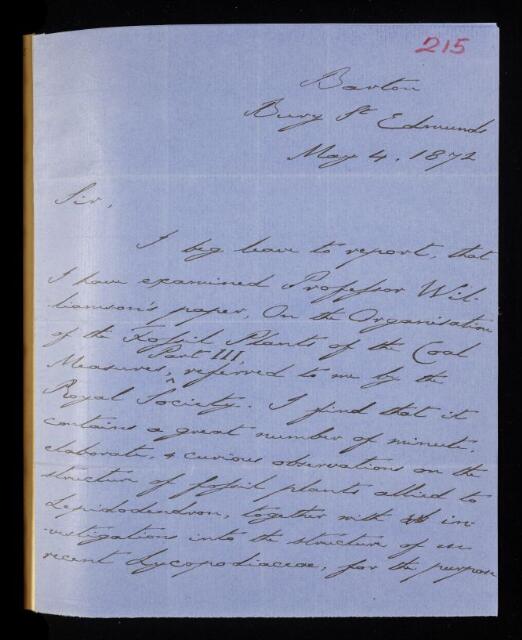 215
Barton
Bury St Edmunds
May 4, 1872
Sir,
I beg leave to report, that
I have examined Professor Wil-
liamson's paper, On the Organisation
of the Fossil Plants of the Coal
Part III
Measures, ^ referred to me by the
Royal Society. I find that it
contains a great number of minute,
elaborate, & curious observations on the
structure of fossil plants allied to
Lepidodendron, together with in-
vestigations into the structure of
recent Lycopodiaceae, for the purpose